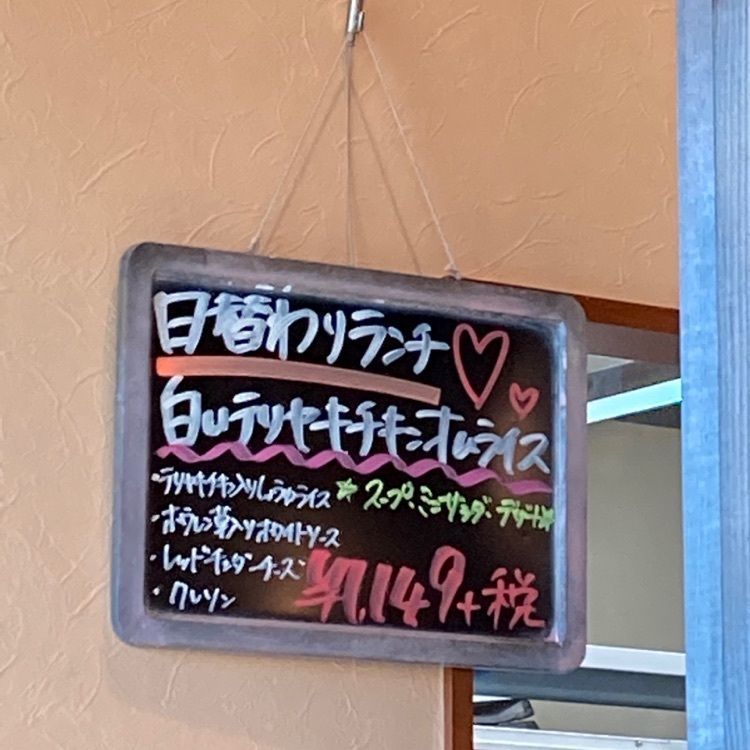 日替わりランチ
白いテリヤキチキンオムライス
・テリヤキチキン入りしょうゆライス
☆スープ、ミニサラダ、デザート☆
・ホウレン草入りホワイトソース
・レッドチェダーチーズ
・クレソン
¥1,149+税